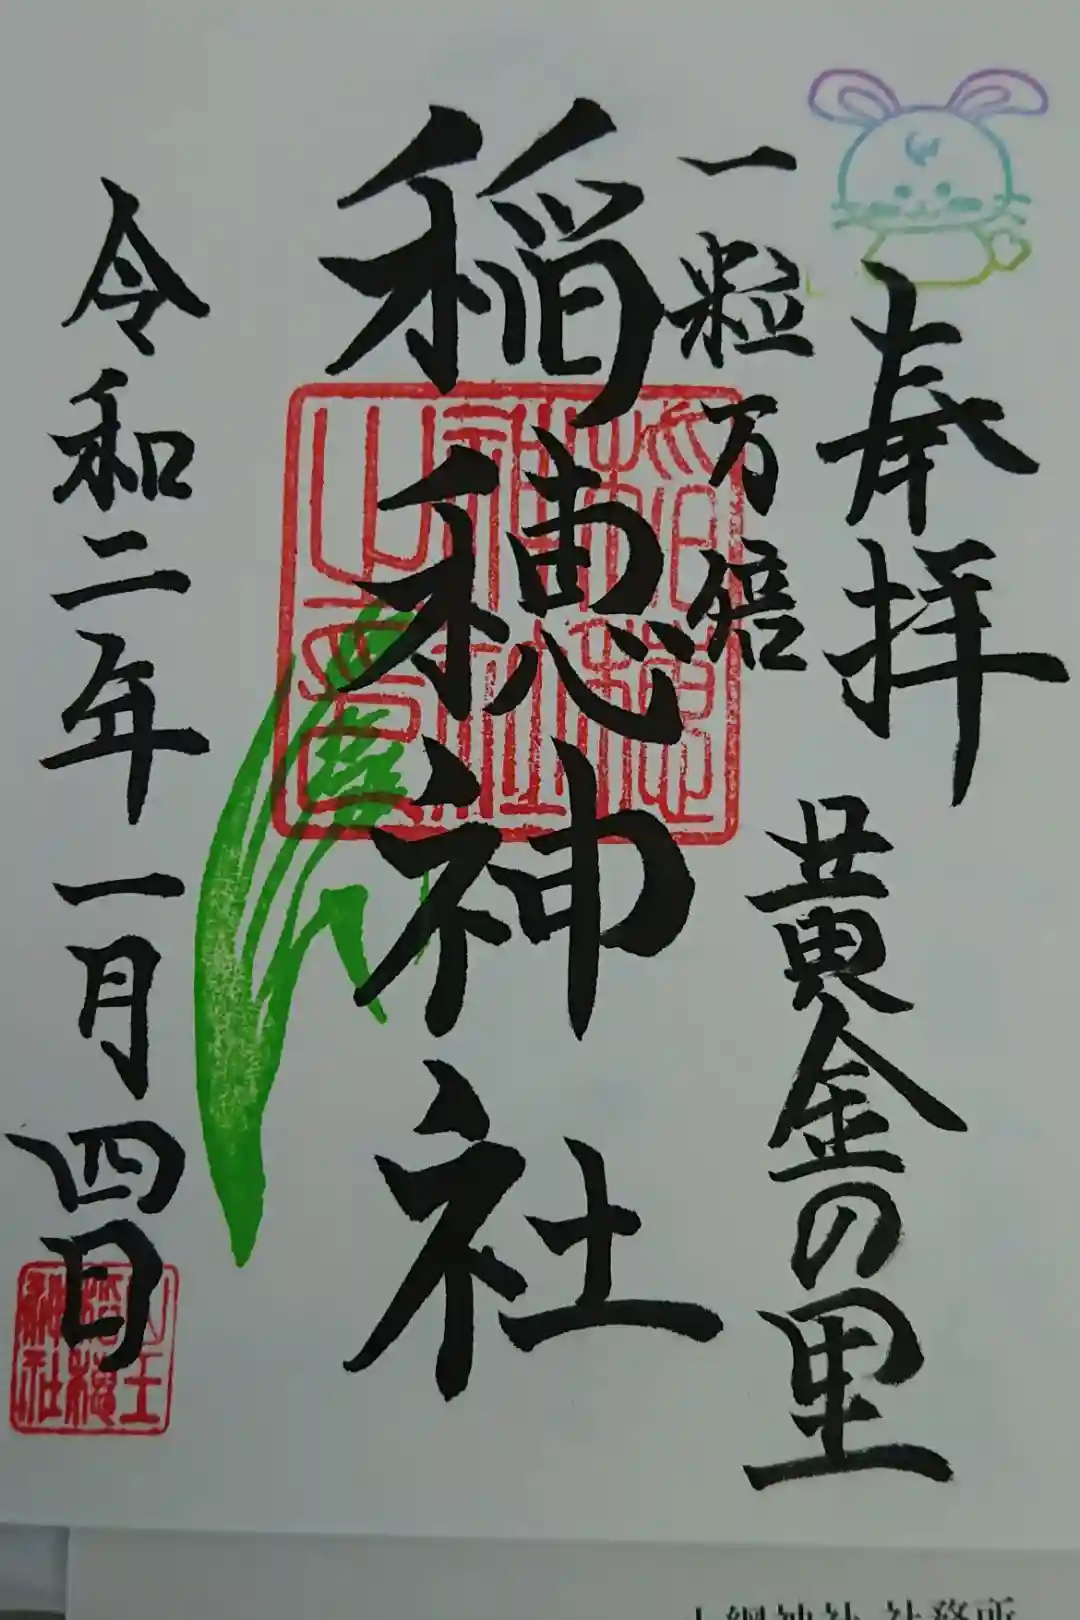 奉拝
一粒万倍
黄金の里
稲穂神社
令和二年一月四日
神社 社務所